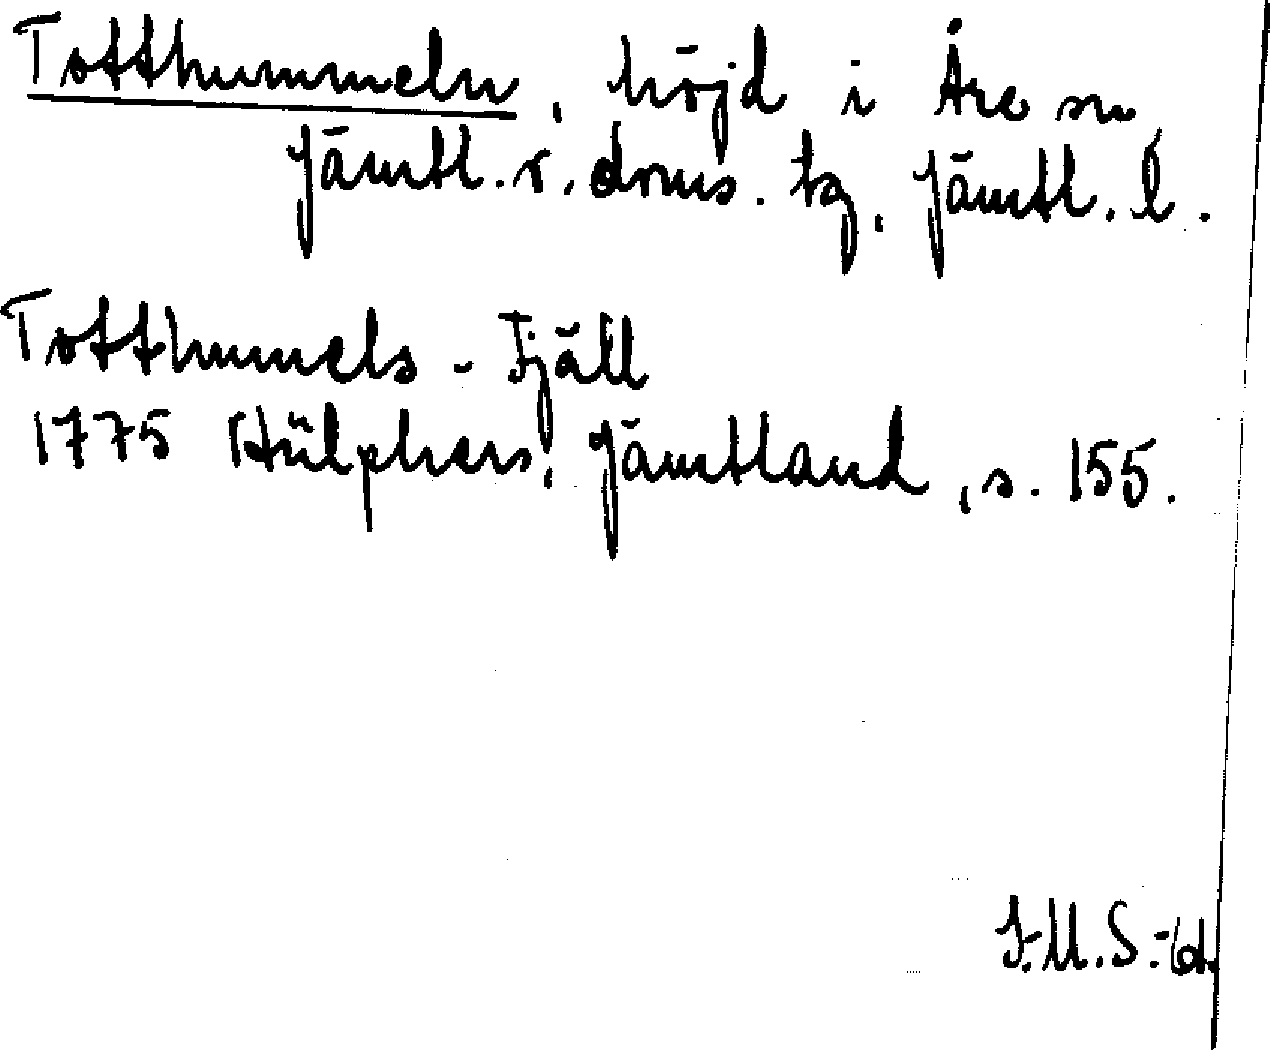 Totthummeln, höjd i Åre sn,
Jämtl. v. doms. tg, Jämtl. l.
Totthummels-Fjäll
1775 Hülphers, Jämtland, s. 155.
J.-M.S.-